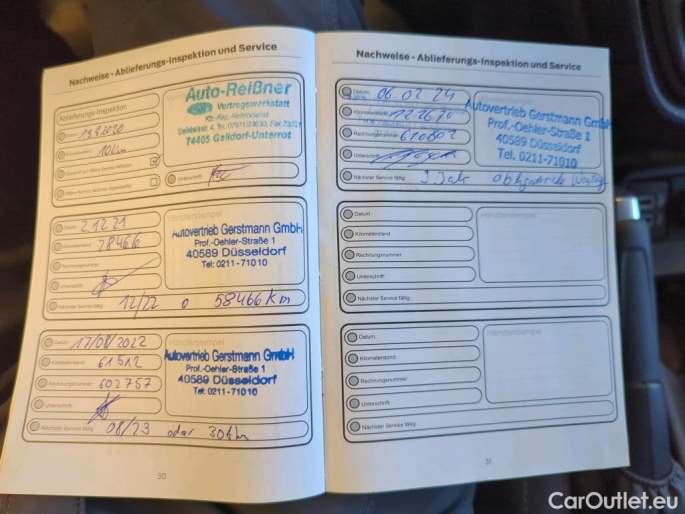 Nachweise - Ablieferungs-Inspektion und Service
Ablieferungs-Inspektion
10km
Unterschrift
Auto-Reißner
Vertragswerkstatt
74405 Gaildorf-Unterrot
Datum
2.12.21
28466
Rechnungsnummer
Unterschrift
Nächster Service fällig
12/22 o 58466km
Händlerstempel
Autovertrieb Gerstmann GmbH
Prof.-Oehler-Straße 1
40589 Düsseldorf
Tel: 0211-71010
Datum
17/08/2022
Kilometerstand
61512
Rechnungsnummer
602757
Unterschrift
Nächster Service fällig
08/23 oder 30tkm
Händlerstempel
Autovertrieb Gerstmann GmbH
Prof.-Oehler-Straße 1
40589 Düsseldorf
Tel: 0211-71010
30
Nachweise - Ablieferungs-Inspektion und Service
Datum
06.02.24
Kilometerstand
Rechnungsnummer
610802
Unterschrift
Nächster Service fällig
Autovertrieb Gerstmann GmbH
Prof.-Oehler-Straße 1
40589 Düsseldorf
Tel. 0211-71010
Datum
Kilometerstand
Rechnungsnummer
Unterschrift
Nächster Service fällig
Händlerstempel
Datum
Kilometerstand
Rechnungsnummer
Unterschrift
Nächster Service fällig
Händlerstempel
31
CarOutlet.eu